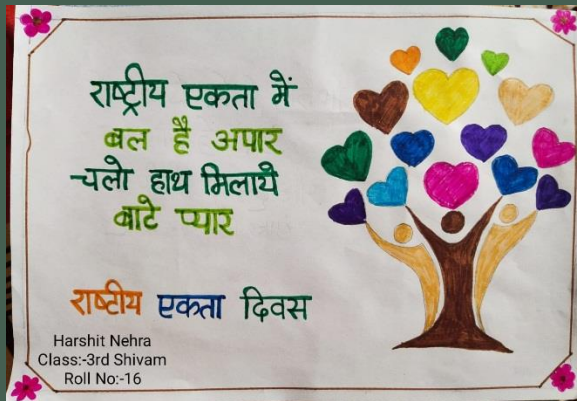 राष्ट्रीय एकता में
बल है अपार
चलो हाथ मिलाये
बाटे प्यार
राष्टीय एकता दिवस
Harshit Nehra
Class:-3rd Shivam
Roll No:-16